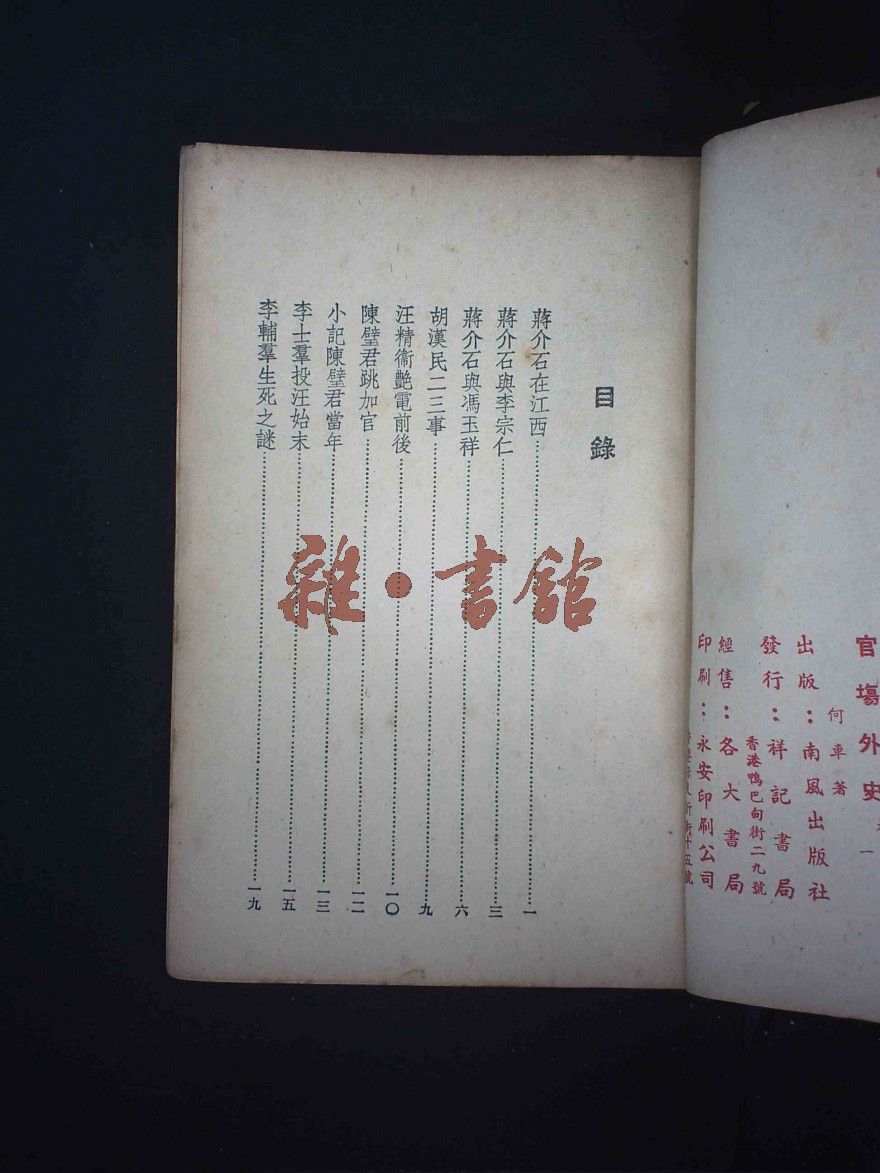 官塲外史
一
何車著
出版：南風出版社
發行：祥記書局
香港鴨巴甸街二九號
經售：各大書局
印刷：永安印刷公司
街十五號
目錄
蔣介石在江西……一
蔣介石與李宗仁……三
蔣介石與馮玉祥……六
胡漢民二三事……九
汪精衞艷電前後……一〇
陳璧君跳加官……一二
小記陳璧君當年……一三
李士羣投汪始末……一五
李輔羣生死之謎……一九
雜·書舘